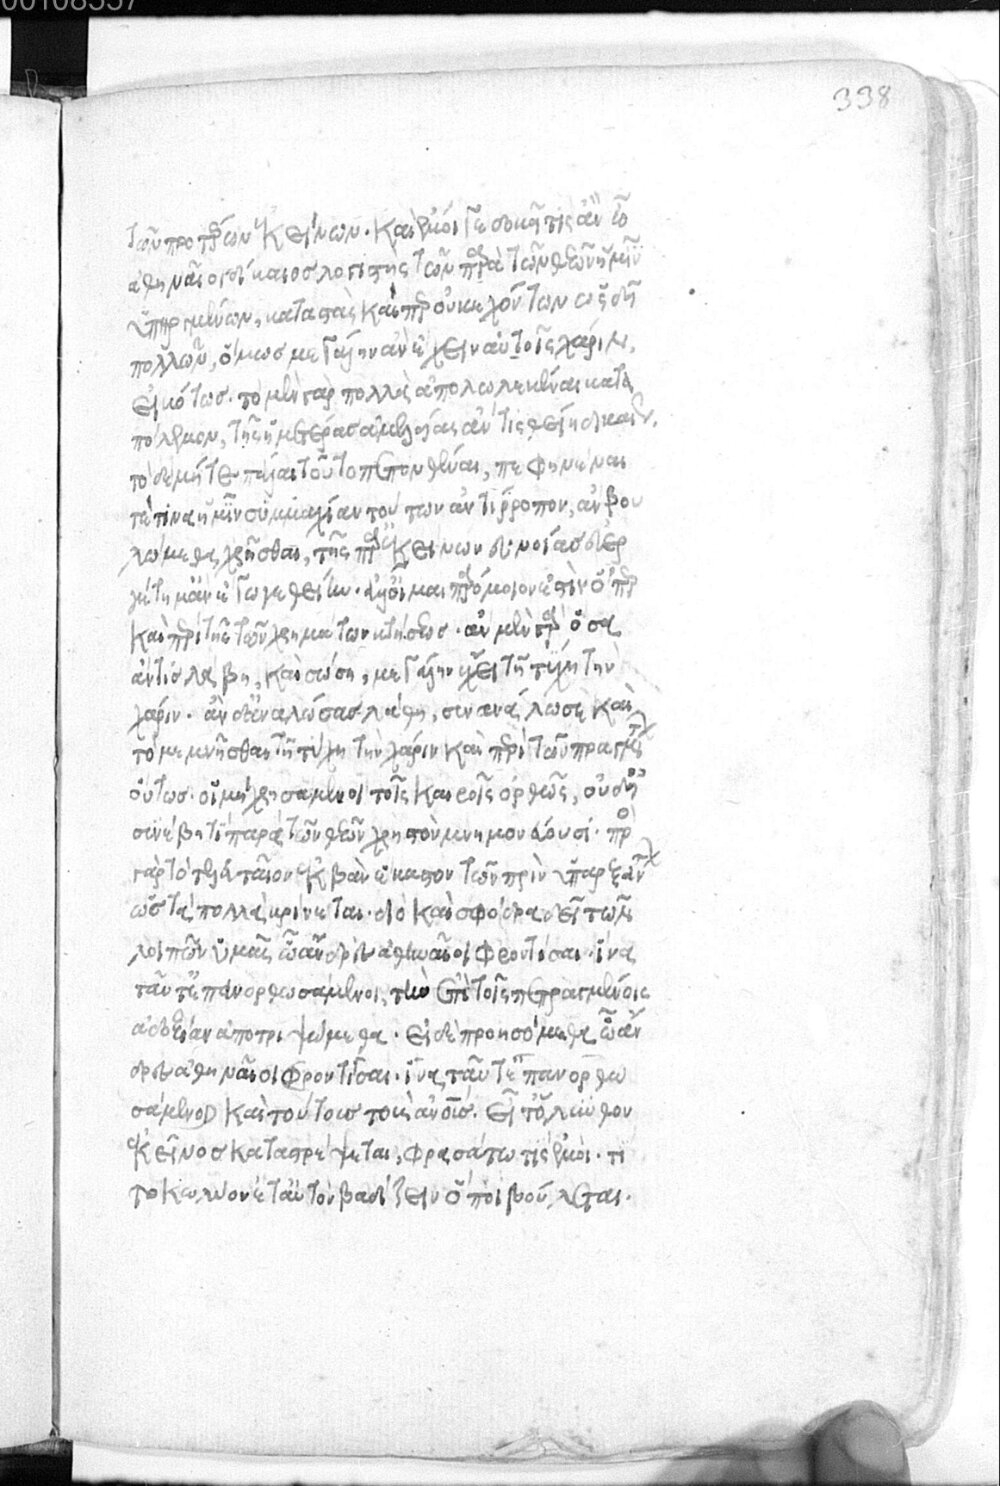 00108557
338
τῶν προτέρων ἐκείνων. καὶ ἔμοιγε δοκεῖ τις ἂν ὦ
ἀθηναῖοι δίκαιος λογιστὴς τῶν παρὰ τῶν θεῶν ἡμῖν
ὑπηργμένων, καταστὰς καίπερ οὐκ ἐχόντων ὡς δεῖ
πολλῶν, ὅμως μεγάλην ἂν ἔχειν αὐτοῖς χάριν,
εἰκότως. τὸ μὲν γὰρ πολλὰ ἀπολωλεκέναι κατὰ
πόλεμον, τῆς ἡμετέρας ἀμελείας ἄν τις θείη δικαίως.
τὸ δὲ μήτε πάλαι τοῦτο πεπονθέναι, πεφηνέναι
τέ τινα ἡμῖν συμμαχίαν τούτων ἀντίρροπον, ἂν βου
λώμεθα χρῆσθαι, τῆς παρ' ἐκείνων εὐνοίας εὐερ
γέτημ' ἂν ἔγωγε θείην. ἀλλ' οἶμαι παρόμοιόν ἐστιν ὅπερ
καὶ περὶ τῆς τῶν χρημάτων κτήσεως. ἂν μὲν γὰρ ὅσα
ἄν τις λάβῃ, καὶ σώσῃ, μεγάλην ἔχει τῇ τύχῃ τὴν
χάριν. ἂν δ' ἀναλώσας λάθῃ, συνανάλωσε καὶ
τὸ μεμνῆσθαι τῇ τύχῃ τὴν χάριν καὶ περὶ τῶν πραγμάτων
οὕτως. οἱ μὴ χρησάμενοι τοῖς καιροῖς ὀρθῶς, οὐδ' εἰ
συνέβη τι παρὰ τῶν θεῶν χρηστὸν μνημονεύουσι. πρὸς
γὰρ τὸ τελευταῖον ἐκβὰν ἕκαστον τῶν πρὶν ὑπαρξάντων
ὡς τὰ πολλὰ κρίνεται. διὸ καὶ σφόδρα δεῖ τῶν
λοιπῶν ὑμᾶς ὦ ἄνδρες ἀθηναῖοι φροντίσαι. ἵνα
ταῦτ' ἐπανορθωσάμενοι, τὴν ἐπὶ τοῖς πεπραγμένοις
ἀδοξίαν ἀποτριψώμεθα. εἰ δὲ προησόμεθα ὦ ἄν
δρες ἀθηναῖοι φροντίσαι. ἵνα ταῦτ' ἐπανορθω
σάμενοι καὶ τούτους τοὺς ἀνους. εἶτ' ὄλυνθον
ἐκεῖνος καταστρέψεται, φρασάτω τις ἐμοί. τί
τὸ κωλῦον ἔτ' αὐτὸν βαδίζειν ὅποι βούλεται.